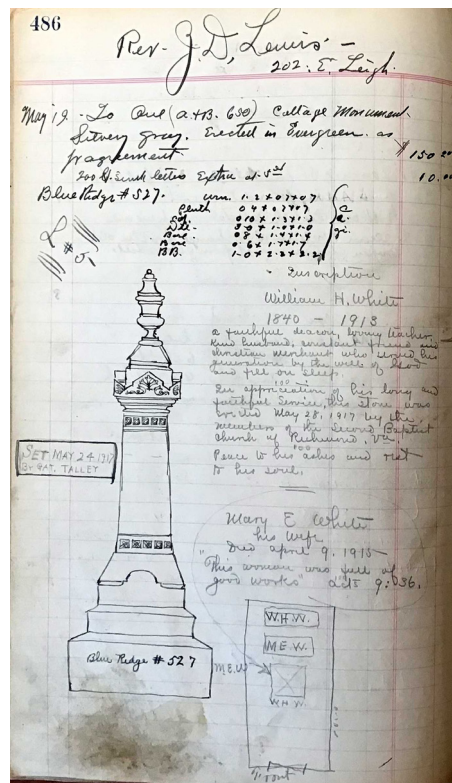 486
Rev. J. D. Lewis -
202. E. Leigh.
May 19 - To One (A.&B. 650) Cottage Monument
Silvery gray. Erected in Evergreen. as
pr agreement
$150
200 Sunk letters Extra at 5
10.00
Blue Ridge # 527.
urn. 1.2 x 0.7 x 0.7
Plinth 0.4 x 0.7 x 0.7
Die
Base
Base
BB. 1-0 x 2.2 x 2.2
Inscription
William H. White
1840 - 1913
a faithful deacon, loving teacher
kind husband, constant friend and
christian merchant who served his
generation by the will of God
and fell on sleep.
In appreciation of his long and
faithful service, this stone was
erected May 28, 1917 by the
members of the Second Baptist
Church of Richmond, Va.
Peace to his ashes and rest
to his soul.
SET MAY 24 1917
BY GAT. TALLEY
Mary E White
his wife
Died April 9, 1915
"This woman was full of
good works" acts 9:36.
W.H.W.
M.E.W.
M.E.W.
W.H.W.
Front
Blue Ridge # 527